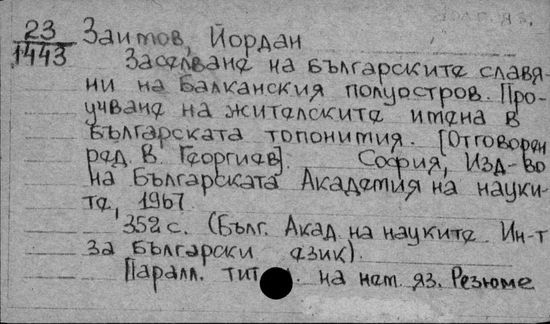 23 Заимов, Йордан
1443 Заселване на българските славя-
ни на Балканския полуостров. Про-
учване на жителските имена в
българската топонимия. [Отговорен
ред. В. Георгиев]. София, Изд-во
на Българската Академия на науки-
те, 1967
352 с. (Бълг. Акад. на науките. Ин-т
за български език).
Паралл. тит. на нем. яз. Резюме